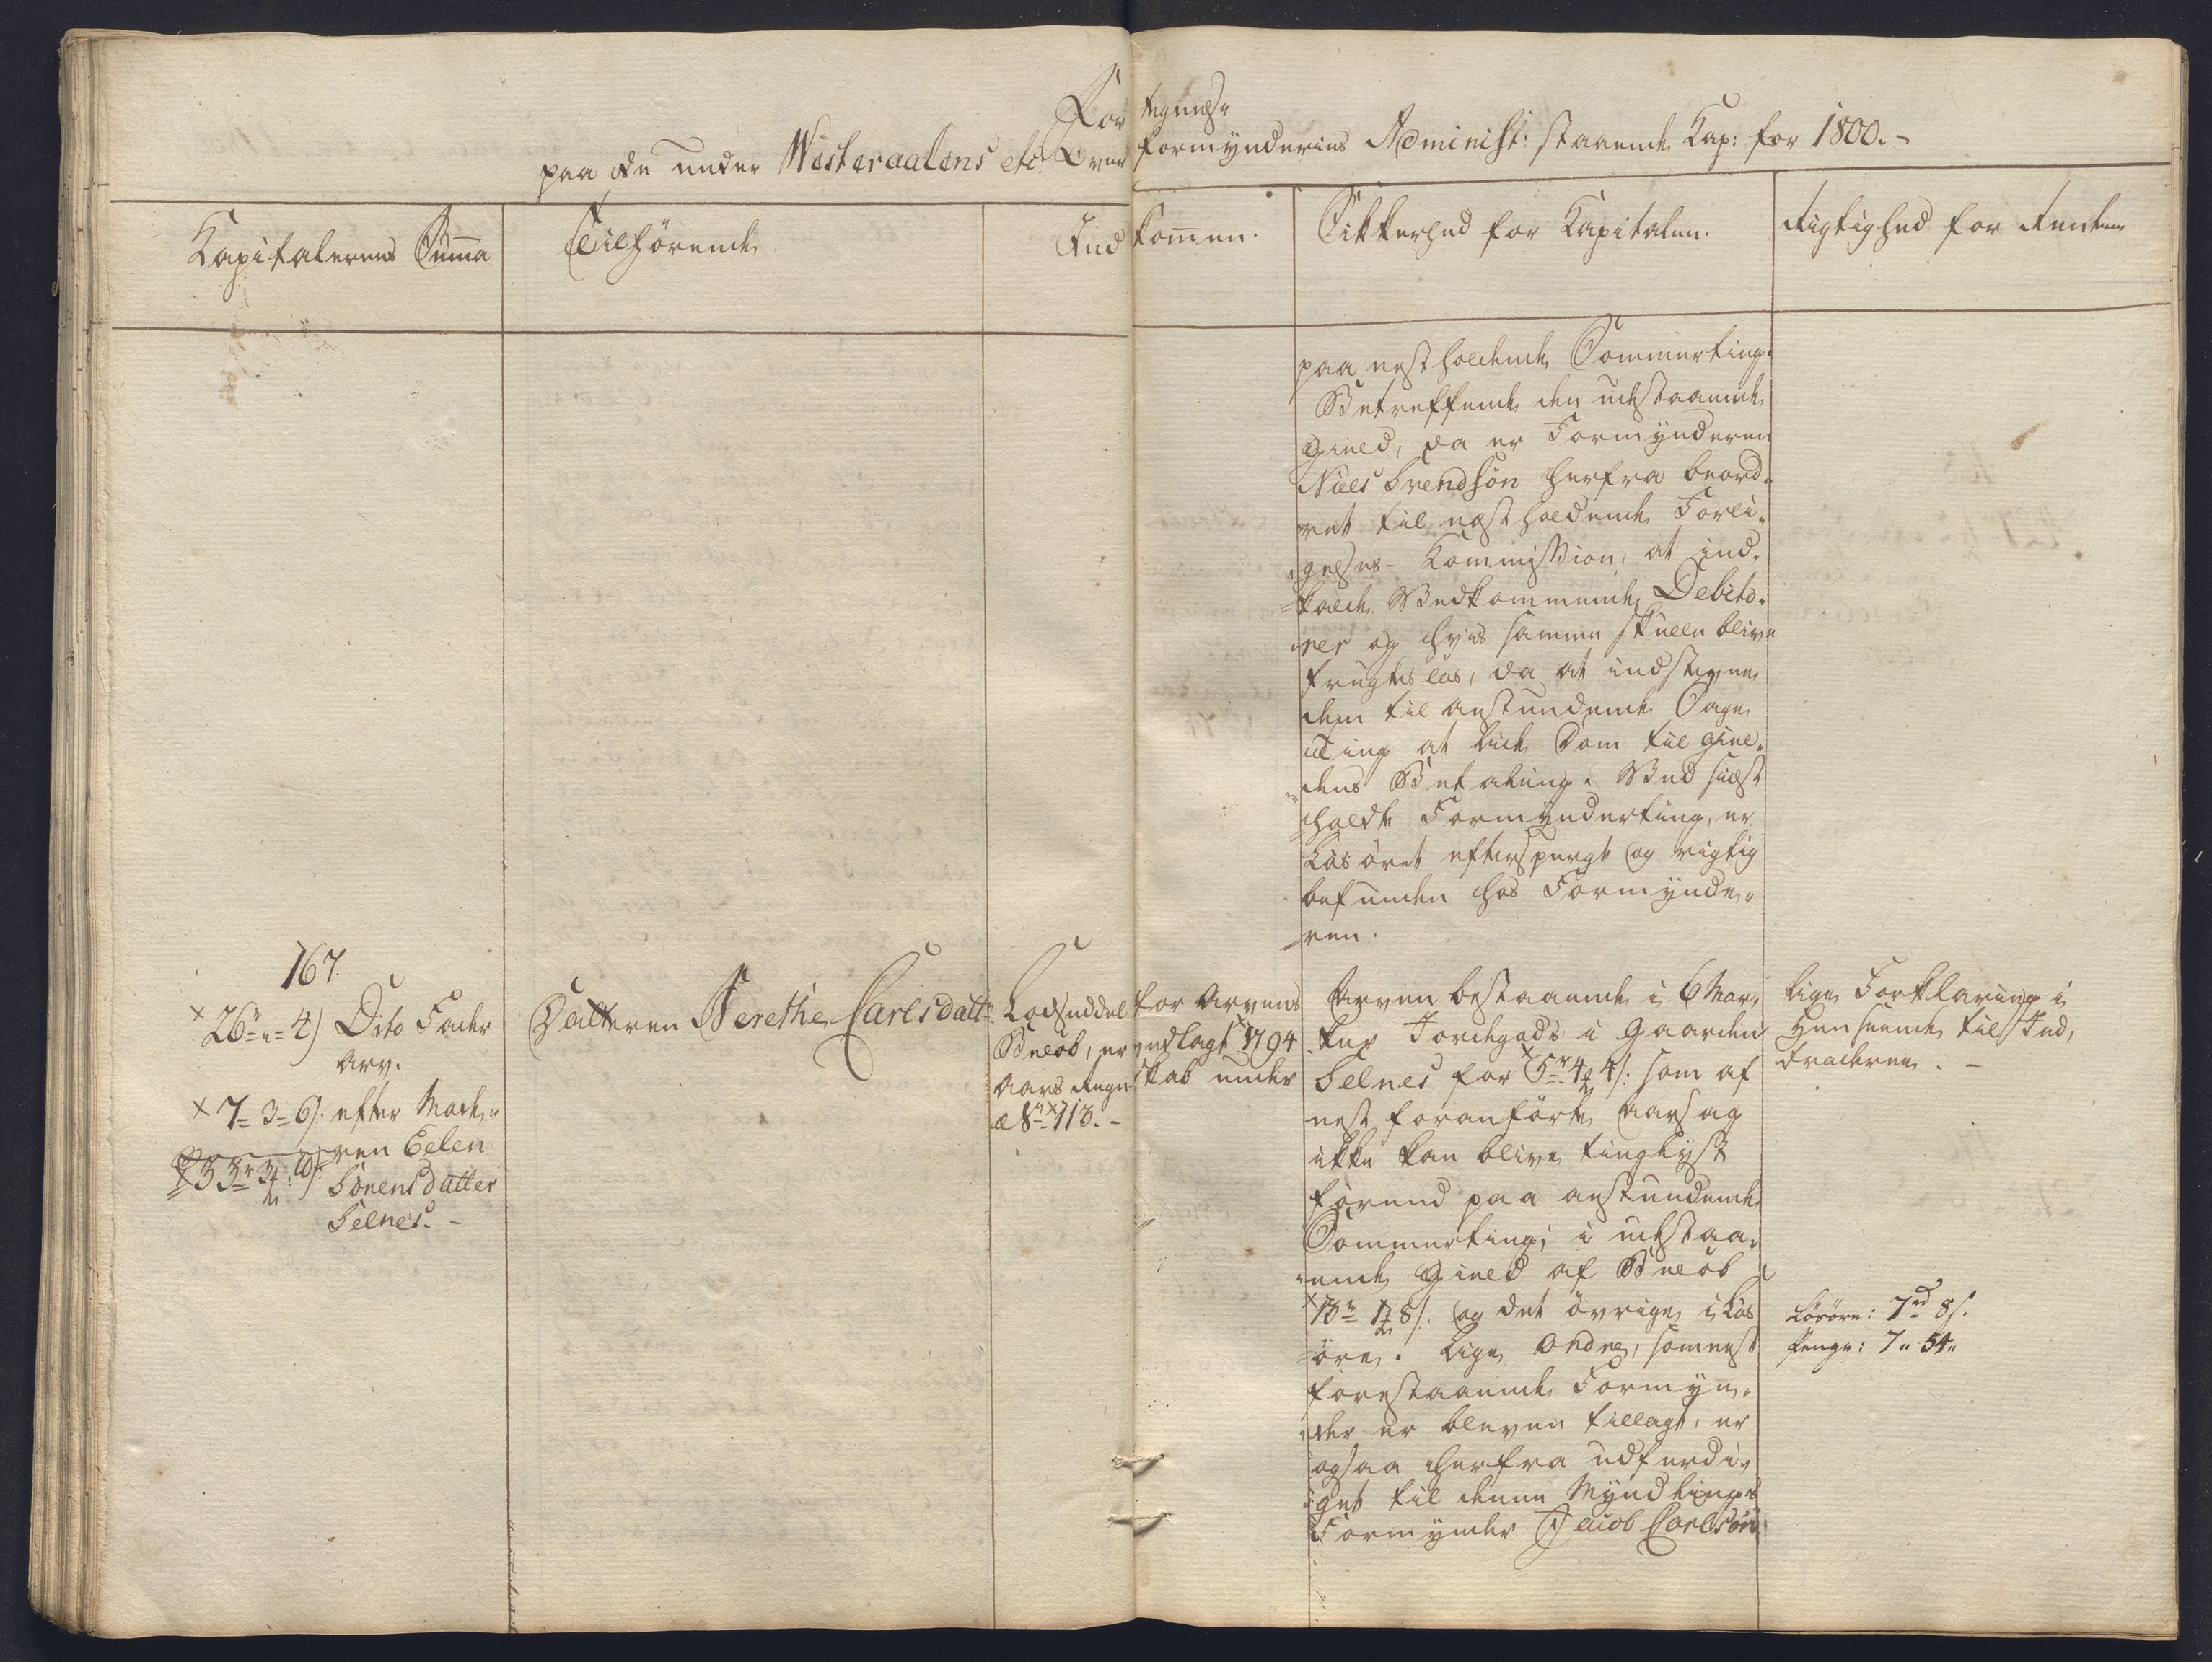 Fortegnelse
paa de under Westeraalens etc. Overformynderies Administ: staaende Kap: for 1800.-
Kapitalernes Summa
Tilhørende
Indkomen.
Sikkerhed for Kapitalen.
Rigtighed for Renten
paa nestholdende Sommerting.
Betreffende den udestaaende
Gield, da er Formynderen
Niels Svendsøn herfra beord-
ret til næstholdende Forli-
gelses-Kommission, at ind-
kalde Vedkommende Debito-
rer og hvis samme skulle blive
frugtesløs, da at indstevne
dem til anstundende Sage
ting at lide Dom til Giel-
dens Betaling. Ved sidst
holdte Formynderting, er
Løsøret efterspurgt og rigtig
befunden hos Formynde-
ren.
167.
26 - 4 s Dito Fader
Arv.
7 - 3 - 6 s. efter Mode-
ren Elen
33 r 3 10 s. Sørensdatter
Selnes. -
Datteren Berethe Carlsdattr
Lodseddel for Arvens
Beløb, er vedlagt 1794
Aars Regnskab under
No 113. -
Arven bestaaende i 6 Mar-
ker Jordegods i Gaarden
Selnes for 5 r 4 4 s: som af
nest foranførte Aarsag
ikke kan blive tinglyst
førend paa anstundende
Sommerting; i udestaa-
ende Gield af Beløb
13 r 1 8 s. og det øvrige i Løs
øre. Lige Ordre, som nest
forestaaende Formyn-
der er bleven tillagt, er
ogsaa herfra udferdi-
get til denne Myndlings
Formynder Jacob Carlsøn
Lige Forklaring i
Henseende til Ind-
dragerne. -
Løsøre: 7 rd 8 s.
Penge: 7 " 54 "